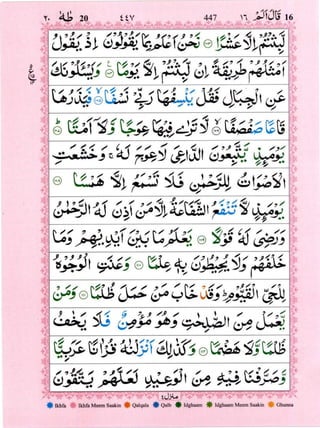 ٢٠ طٰهٰ 20 ٤٤٧ 447 ١٦ قَالَ اَلَمْ 16
لَّبِثْتُمْ اِلَّا عَشْرًا ﴿١٠٣﴾ نَحْنُ اَعْلَمُ بِمَا يَقُوْلُوْنَ اِذْ يَقُوْلُ
اَمْثَلُهُمْ طَرِيْقَةً اِنْ لَّبِثْتُمْ اِلَّا يَوْمًا ﴿١٠٤﴾ وَيَسْـَٔلُوْنَكَ
عَنِ الْجِبَالِ فَقُلْ يَنْسِفُهَا رَبِّيْ نَسْفًا ﴿١٠٥﴾ فَيَذَرُهَا
قَاعًا صَفْصَفًا ﴿١٠٦﴾ لَّا تَرٰى فِيْهَا عِوَجًا وَّلَاۤ اَمْتًا ﴿١٠٧﴾
يَوْمَئِذٍ يَّتَّبِعُوْنَ الدَّاعِيَ لَا عِوَجَ لَهٗ ۚ وَخَشَعَتِ
الْاَصْوَاتُ لِلرَّحْمٰنِ فَلَا تَسْمَعُ اِلَّا هَمْسًا ﴿١٠٨﴾
يَوْمَئِذٍ لَّا تَنْفَعُ الشَّفَاعَةُ اِلَّا مَنْ اَذِنَ لَهُ الرَّحْمٰنُ
وَرَضِيَ لَهٗ قَوْلًا ﴿١٠٩﴾ يَعْلَمُ مَا بَيْنَ اَيْدِيْهِمْ وَمَا
خَلْفَهُمْ وَلَا يُحِيْطُوْنَ بِهٖ عِلْمًا ﴿١١٠﴾ وَعَنَتِ الْوُجُوْهُ
لِلْحَيِّ الْقَيُّوْمِ ؕ وَقَدْ خَابَ مَنْ حَمَلَ ظُلْمًا ﴿١١١﴾ وَمَنْ
يَّعْمَلْ مِنَ الصّٰلِحٰتِ وَهُوَ مُؤْمِنٌ فَلَا يَخٰفُ
ظُلْمًا وَّلَا هَضْمًا ﴿١١٢﴾ وَكَذٰلِكَ اَنْزَلْنٰهُ قُرْاٰنًا عَرَبِيًّا
وَّصَرَّفْنَا فِيْهِ مِنَ الْوَعِيْدِ لَعَلَّهُمْ يَتَّقُوْنَ
منزل٤
Ikhfa Ikhfa Meem Saakin Qalqala Qalb Idghaam Idghaam Meem Saakin Ghunna